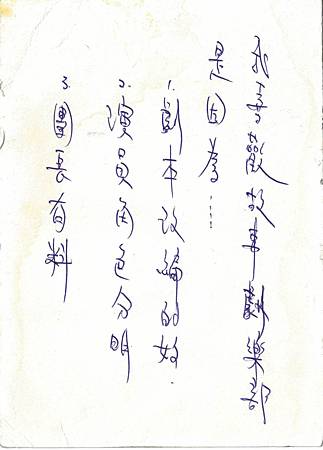 我喜歡故事樂部
是因為......
1. 劇本改編的好.
2. 演員角色分明
3. 團長有料